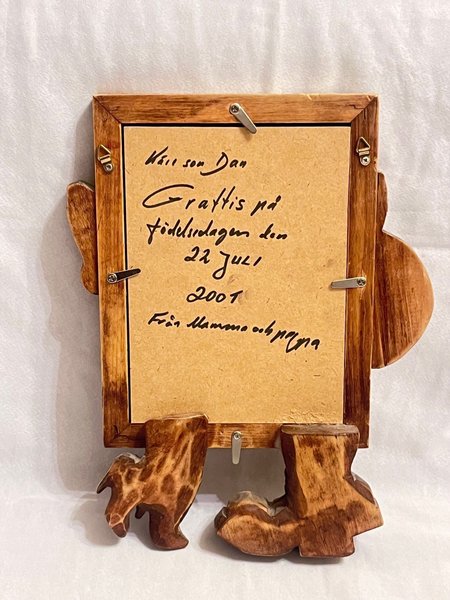 Vår son Dan
Grattis på
födelsedagen den
22 JULI
2001
Från Mamma och pappa